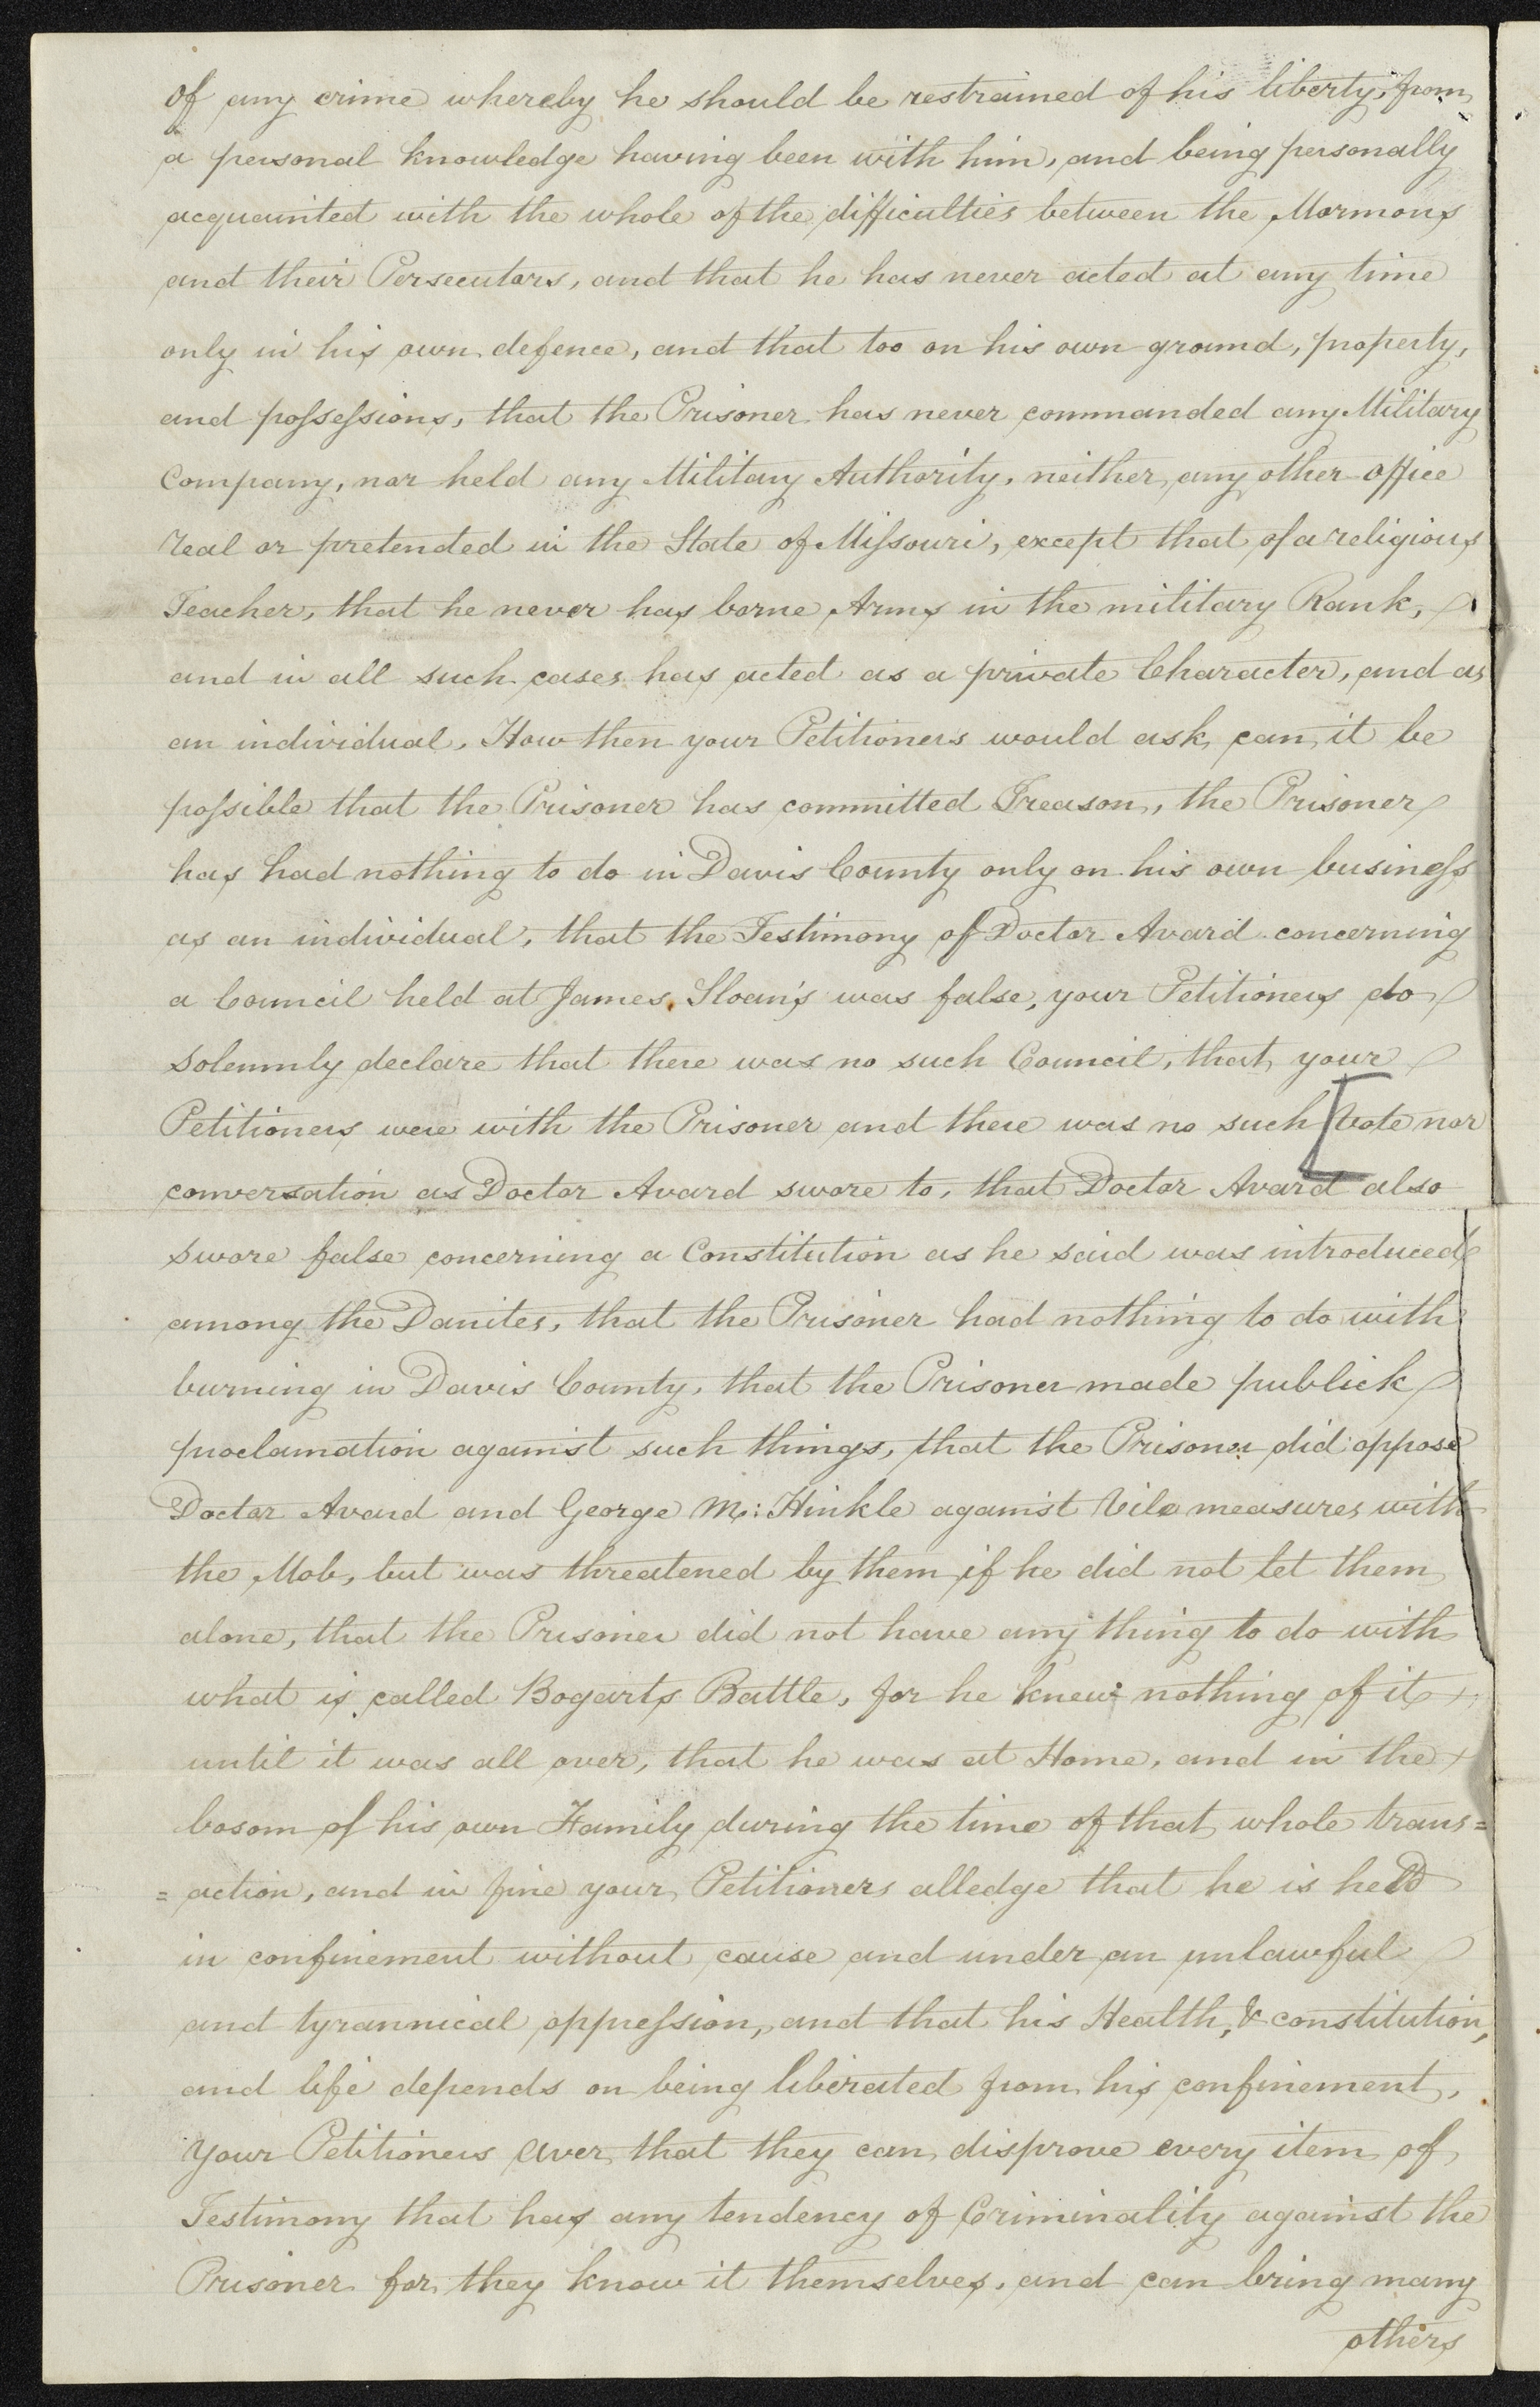 of any crime whereby he should be restrained of his liberty, from
a personal knowledge having been with him, and being personally
acquainted with the whole of the difficulties between the Mormons
and their Persecutors, and that he has never acted at any time
only in his own defence, and that too on his own ground, property,
and possessions, that the Prisoner has never commanded any Military
Company, nor held any Military Authority, neither any other office
real or pretended in the State of Missouri, except that of a religious
Teacher, that he never has borne Arms in the military Rank,
and in all such cases has acted as a private Character, and as
an individual, How then your Petitioners would ask can it be
possible that the Prisoner has committed Treason, the Prisoner
has had nothing to do in Davis County only on his own business
as an individual, that the Testimony of Doctor Avard concerning
a Council held at James Sloan's was false, your Petitioners do
Solemnly declare that there was no such Council, that your
Petitioners were with the Prisoner and there was no such [Vote nor
conversation as Doctor Avard swore to, that Doctor Avard also
swore false concerning a Constitution as he said was introduced
among the Danites, that the Prisoner had nothing to do with
burning in Davis County, that the Prisoner made publick
proclamation against such things, that the Prisoner did oppose
Doctor Avard and George M: Hinkle against Vile measures with
the Mob, but was threatened by them if he did not let them
alone, that the Prisoner did not have any thing to do with
what is called Bogarts Battle, for he knew nothing of it
until it was all over, that he was at Home, and in the
bosom of his own Family during the time of that whole trans=
=action, and in fine your Petitioners alledge that he is held
in confinement without cause and under an unlawful
and tyrannical oppression, and that his Health, & constitution,
and life depends on being liberated from his confinement,
Your Petitioners aver that they can disprove every item of
Testimony that has any tendency of Criminality against the
Prisoner for they know it themselves, and can bring many
others